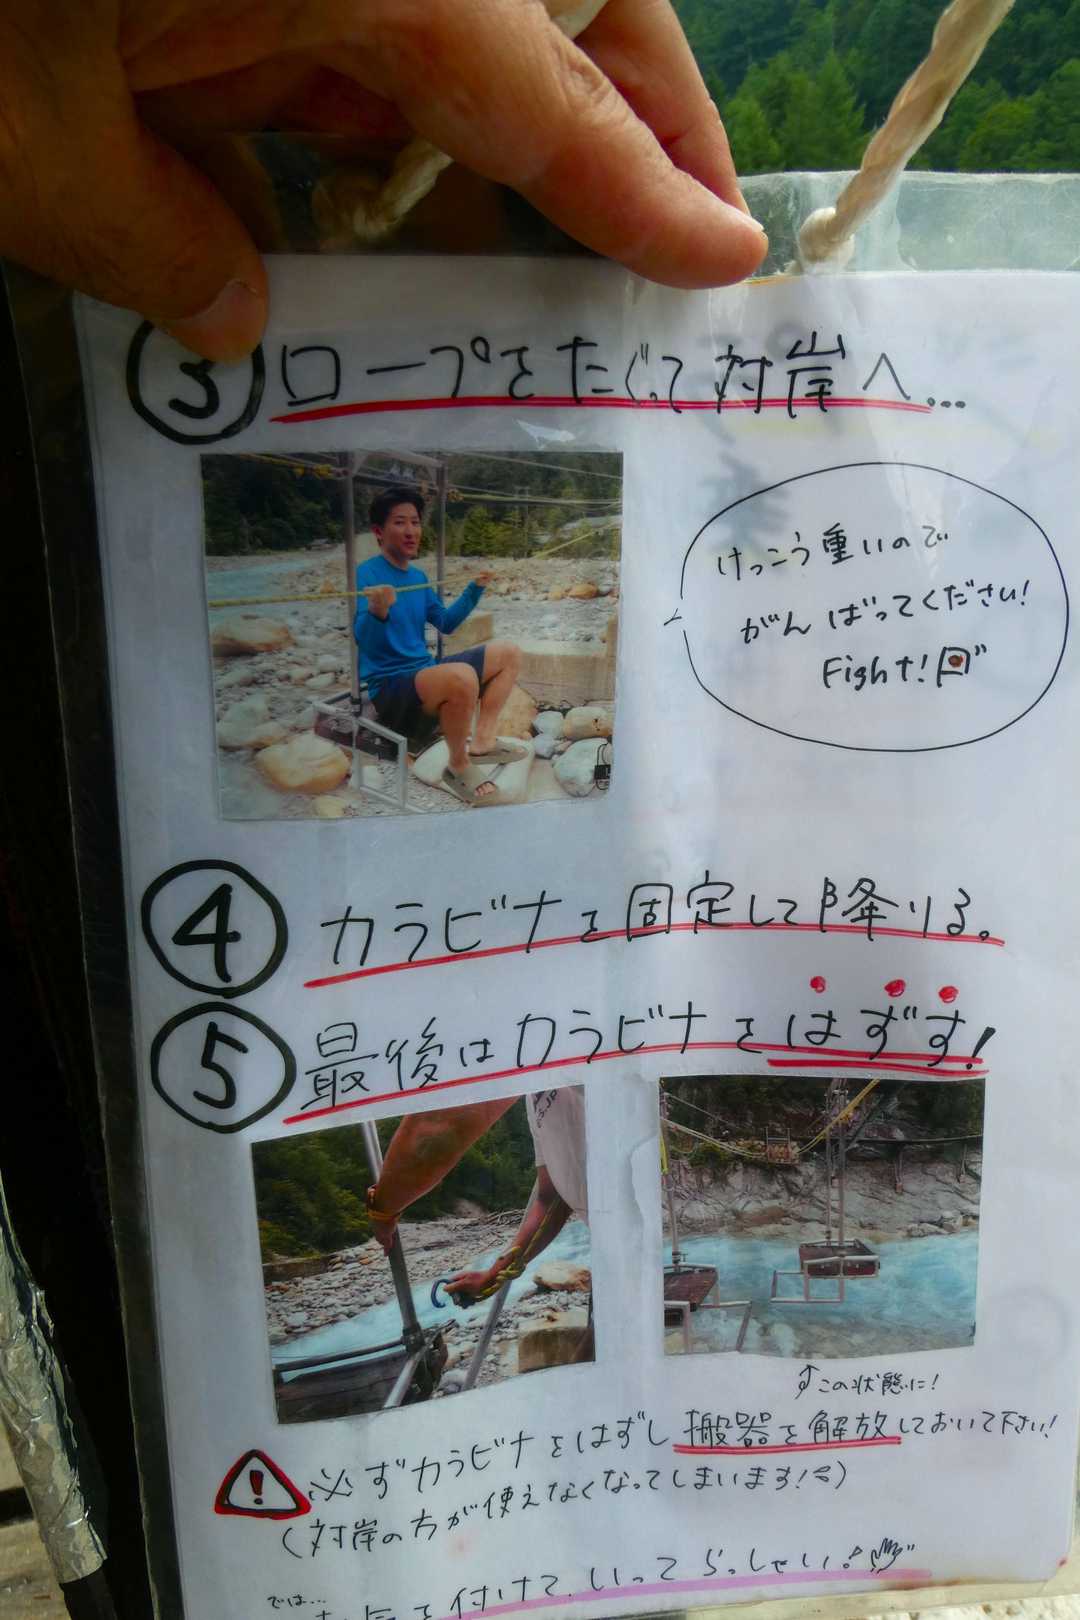 ③ ロープをたぐって対岸へ...
けっこう重いので
がんばってください!
Fight!
④ カラビナを固定して降りる。
⑤ 最後はカラビナをはずす!
ES.JP
この状態に!
必ずカラビナをはずし搬器を解放しておいて下さい!
(対岸の方が使えなくなってしまいます!)
では...
気を付けて、いってらっしゃい!